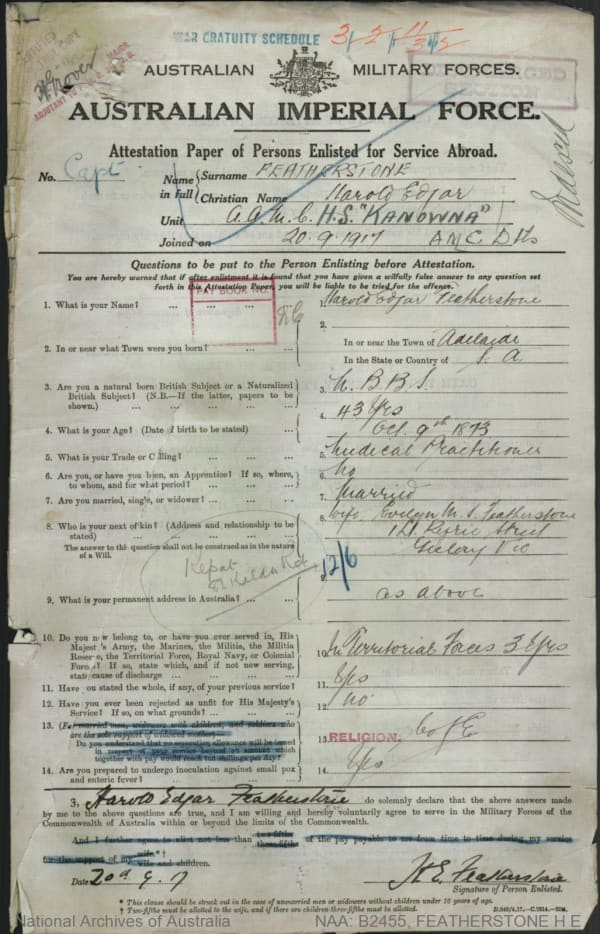 WAR GRATUITY SCHEDULE
AUSTRALIAN MILITARY FORCES.
AUSTRALIAN IMPERIAL FORCE.
Attestation Paper of Persons Enlisted for Service Abroad.
No. Capt
Name in full
Surname FEATHERSTONE
Christian Name Harold Edgar
Unit A.A.M.C. H.S. "KANOWNA"
Joined on 20.9.1917
Questions to be put to the Person Enlisting before Attestation.
You are hereby warned that if after enlistment it is found that you have given a wilfully false answer to any question set
forth in this Attestation Paper, you will be liable to be tried for the offence.
PAY BOOK No.
1. What is your Name? ... ... ... ...
Harold Edgar Featherstone
2. In or near what Town were you born? ... ...
2. In or near the Town of Adelaide
In the State or Country of S. A
3. Are you a natural born British Subject or a Naturalized
British Subject? (N.B.—If the latter, papers to be
shown.) ... ... ... ...
3. N. B. B. S.
4. What is your Age? (Date of birth to be stated) ...
4. 43 yrs
Oct. 9th 1873
5. What is your Trade or Calling? ... ... ...
5. Medical Practitioner
6. Are you, or have you been, an Apprentice? If so, where,
to whom, and for what period? ... ... ...
6. No
7. Are you married, single, or widower? ... ...
7. Married
8. Who is your next of kin? (Address and relationship to be
stated) ... ... ... ...
The answer to this question shall not be construed as in the nature
of a Will.
8. Wife, Evelyn M. S. Featherstone
Street
Vic
St Kilda Rd
12/6
9. What is your permanent address in Australia? ... ...
9. as above
10. Do you now belong to, or have you ever served in, His
Majesty's Army, the Marines, the Militia, the Militia
Reserve, the Territorial Force, Royal Navy, or Colonial
Forces? If so, state which, and if not now serving,
state cause of discharge ... ... ...
10. In Territorial Forces 3 yrs
11. Have you stated the whole, if any, of your previous service?
11. Yes
12. Have you ever been rejected as unfit for His Majesty's
Service? If so, on what grounds? ... ... ...
12. no
13. (For married men, widowers with children, and soldiers who
are the sole support of widowed mother)—
Do you understand that no separation allowance will be issued
in respect of your service beyond an amount which
together with pay would reach ten shillings per day?
13. RELIGION. C of E
14. Are you prepared to undergo inoculation against small pox
and enteric fever? ... ... ...
14. Yes
3, Harold Edgar Featherstone do solemnly declare that the above answers made
by me to the above questions are true, and I am willing and hereby voluntarily agree to serve in the Military Forces of the
Commonwealth of Australia within or beyond the limits of the Commonwealth.
And I further agree to allot not less than two-fifths three-fifths of the pay payable to me from time to time during my service
for the support of my wife.*†
wife and children.
Date 20. 9. 17
H E. Featherstone
Signature of Person Enlisted.
* This clause should be struck out in the case of unmarried men or widowers without children under 16 years of age.
† Two-fifths must be allotted to the wife, and if there are children three-fifths must be allotted.
National Archives of Australia
NAA: B2455, FEATHERSTONE H E